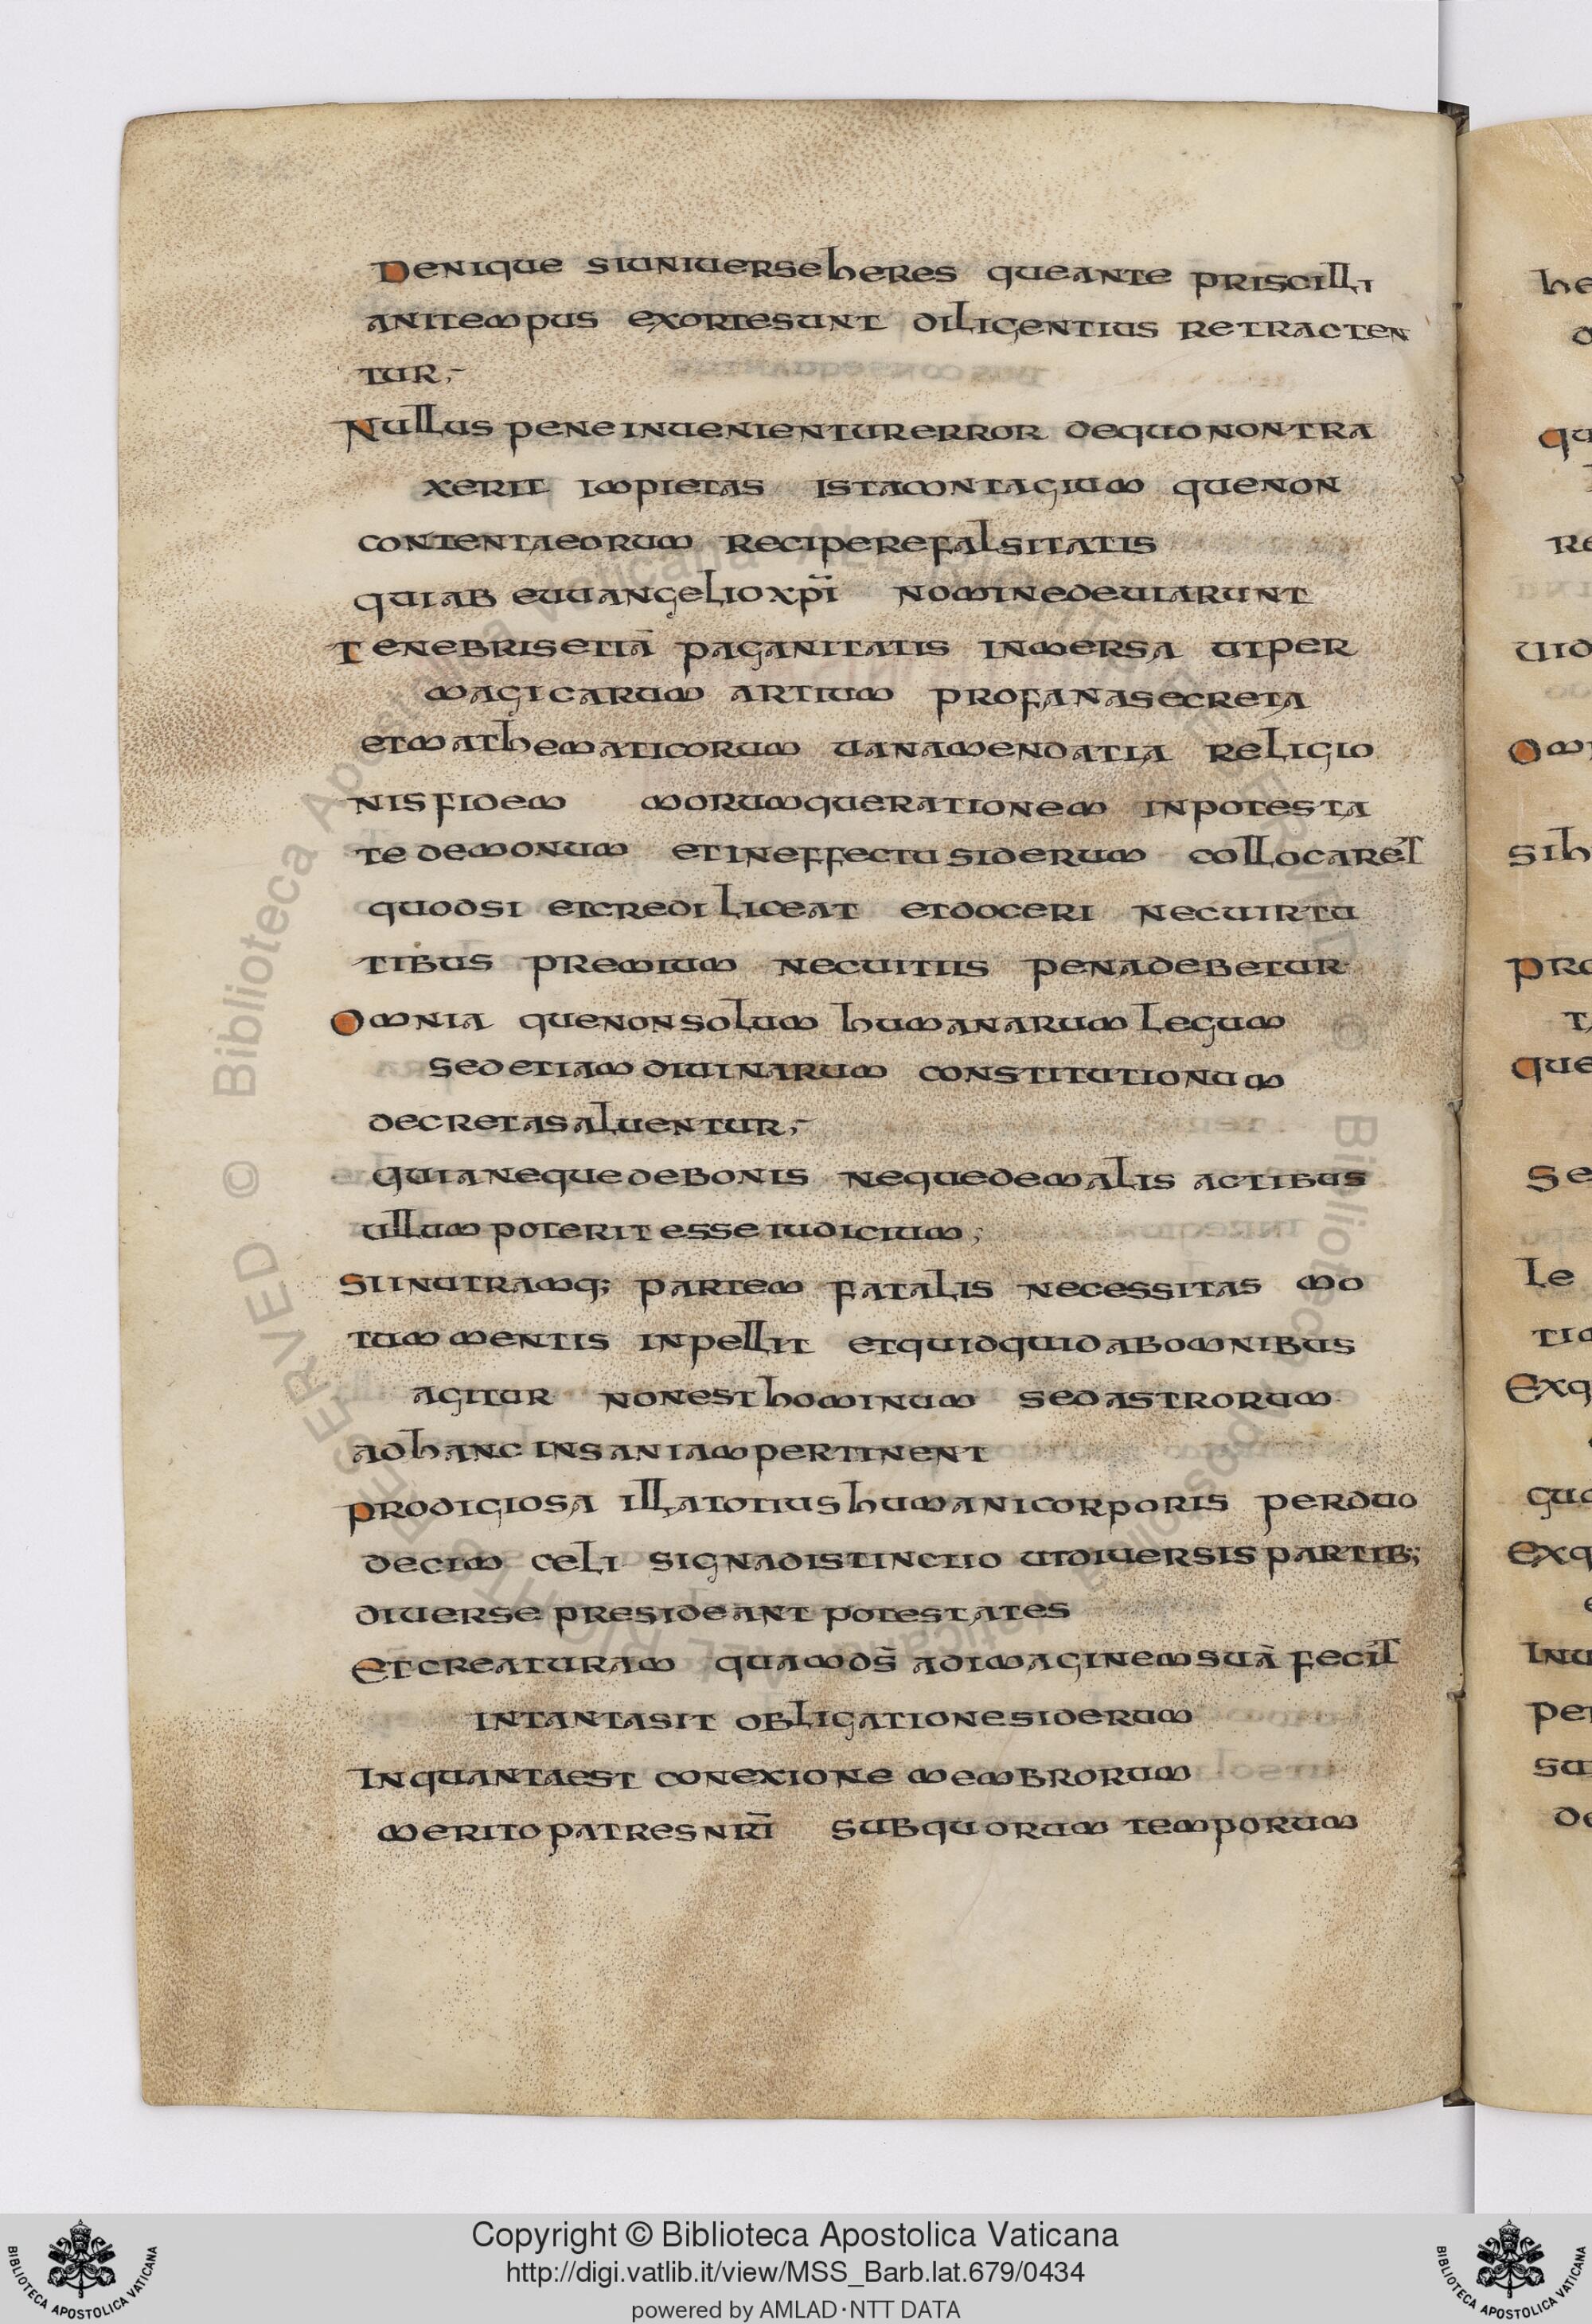 Denique siuniuerseheres queante priscilli
anitempus exortesunt diligentius retracten
tur;
Nullus peneinuenienturerror dequonontra
xerit impietas istacontagium quenon
contentaeorum reciperefalsitatis
quiab euuangelioxp̄i nominedeuiarunt
Tenebrisetiā paganitatis inmersa utper
magicarum artium profanasecreta
etmathematicorum uanamendatia religio
nisfidem morumquerationem inpotesta
te demonum etineffectu siderum collocaret
quodsi etcredi liceat etdoceri necuirtu
tibus premium necuitiis penadebetur
Omnia quenonsolum humanarum legum
sed etiam diuinarum constitutionum
decretasaluentur;
quianequedebonis nequedemalis actibus
ullum poterit esse iudicium;
Siinutramq; partem fatalis necessitas mo
tum mentis inpellit etquidquidabomnibus
agitur nonest hominum sedastrorum
adhanc insaniampertinent
prodigiosa illatotiushumanicorporis perduo
decim celi signadistinctio utdiuersispartib;
diuerse presideant potestates
Etcreaturam quamd̄s adimaginemsuā fecit
intantasit obligationesiderum
Inquantaest conexione membrorum
meritopatresnr̄i subquorum temporum
Copyright © Biblioteca Apostolica Vaticana
http://digi.vatlib.it/view/MSS_Barb.lat.679/0434
powered by AMLAD·NTT DATA
BIBLIOTECA APOSTOLICA VATICANA
BIBLIOTECA APOSTOLICA VATICANA